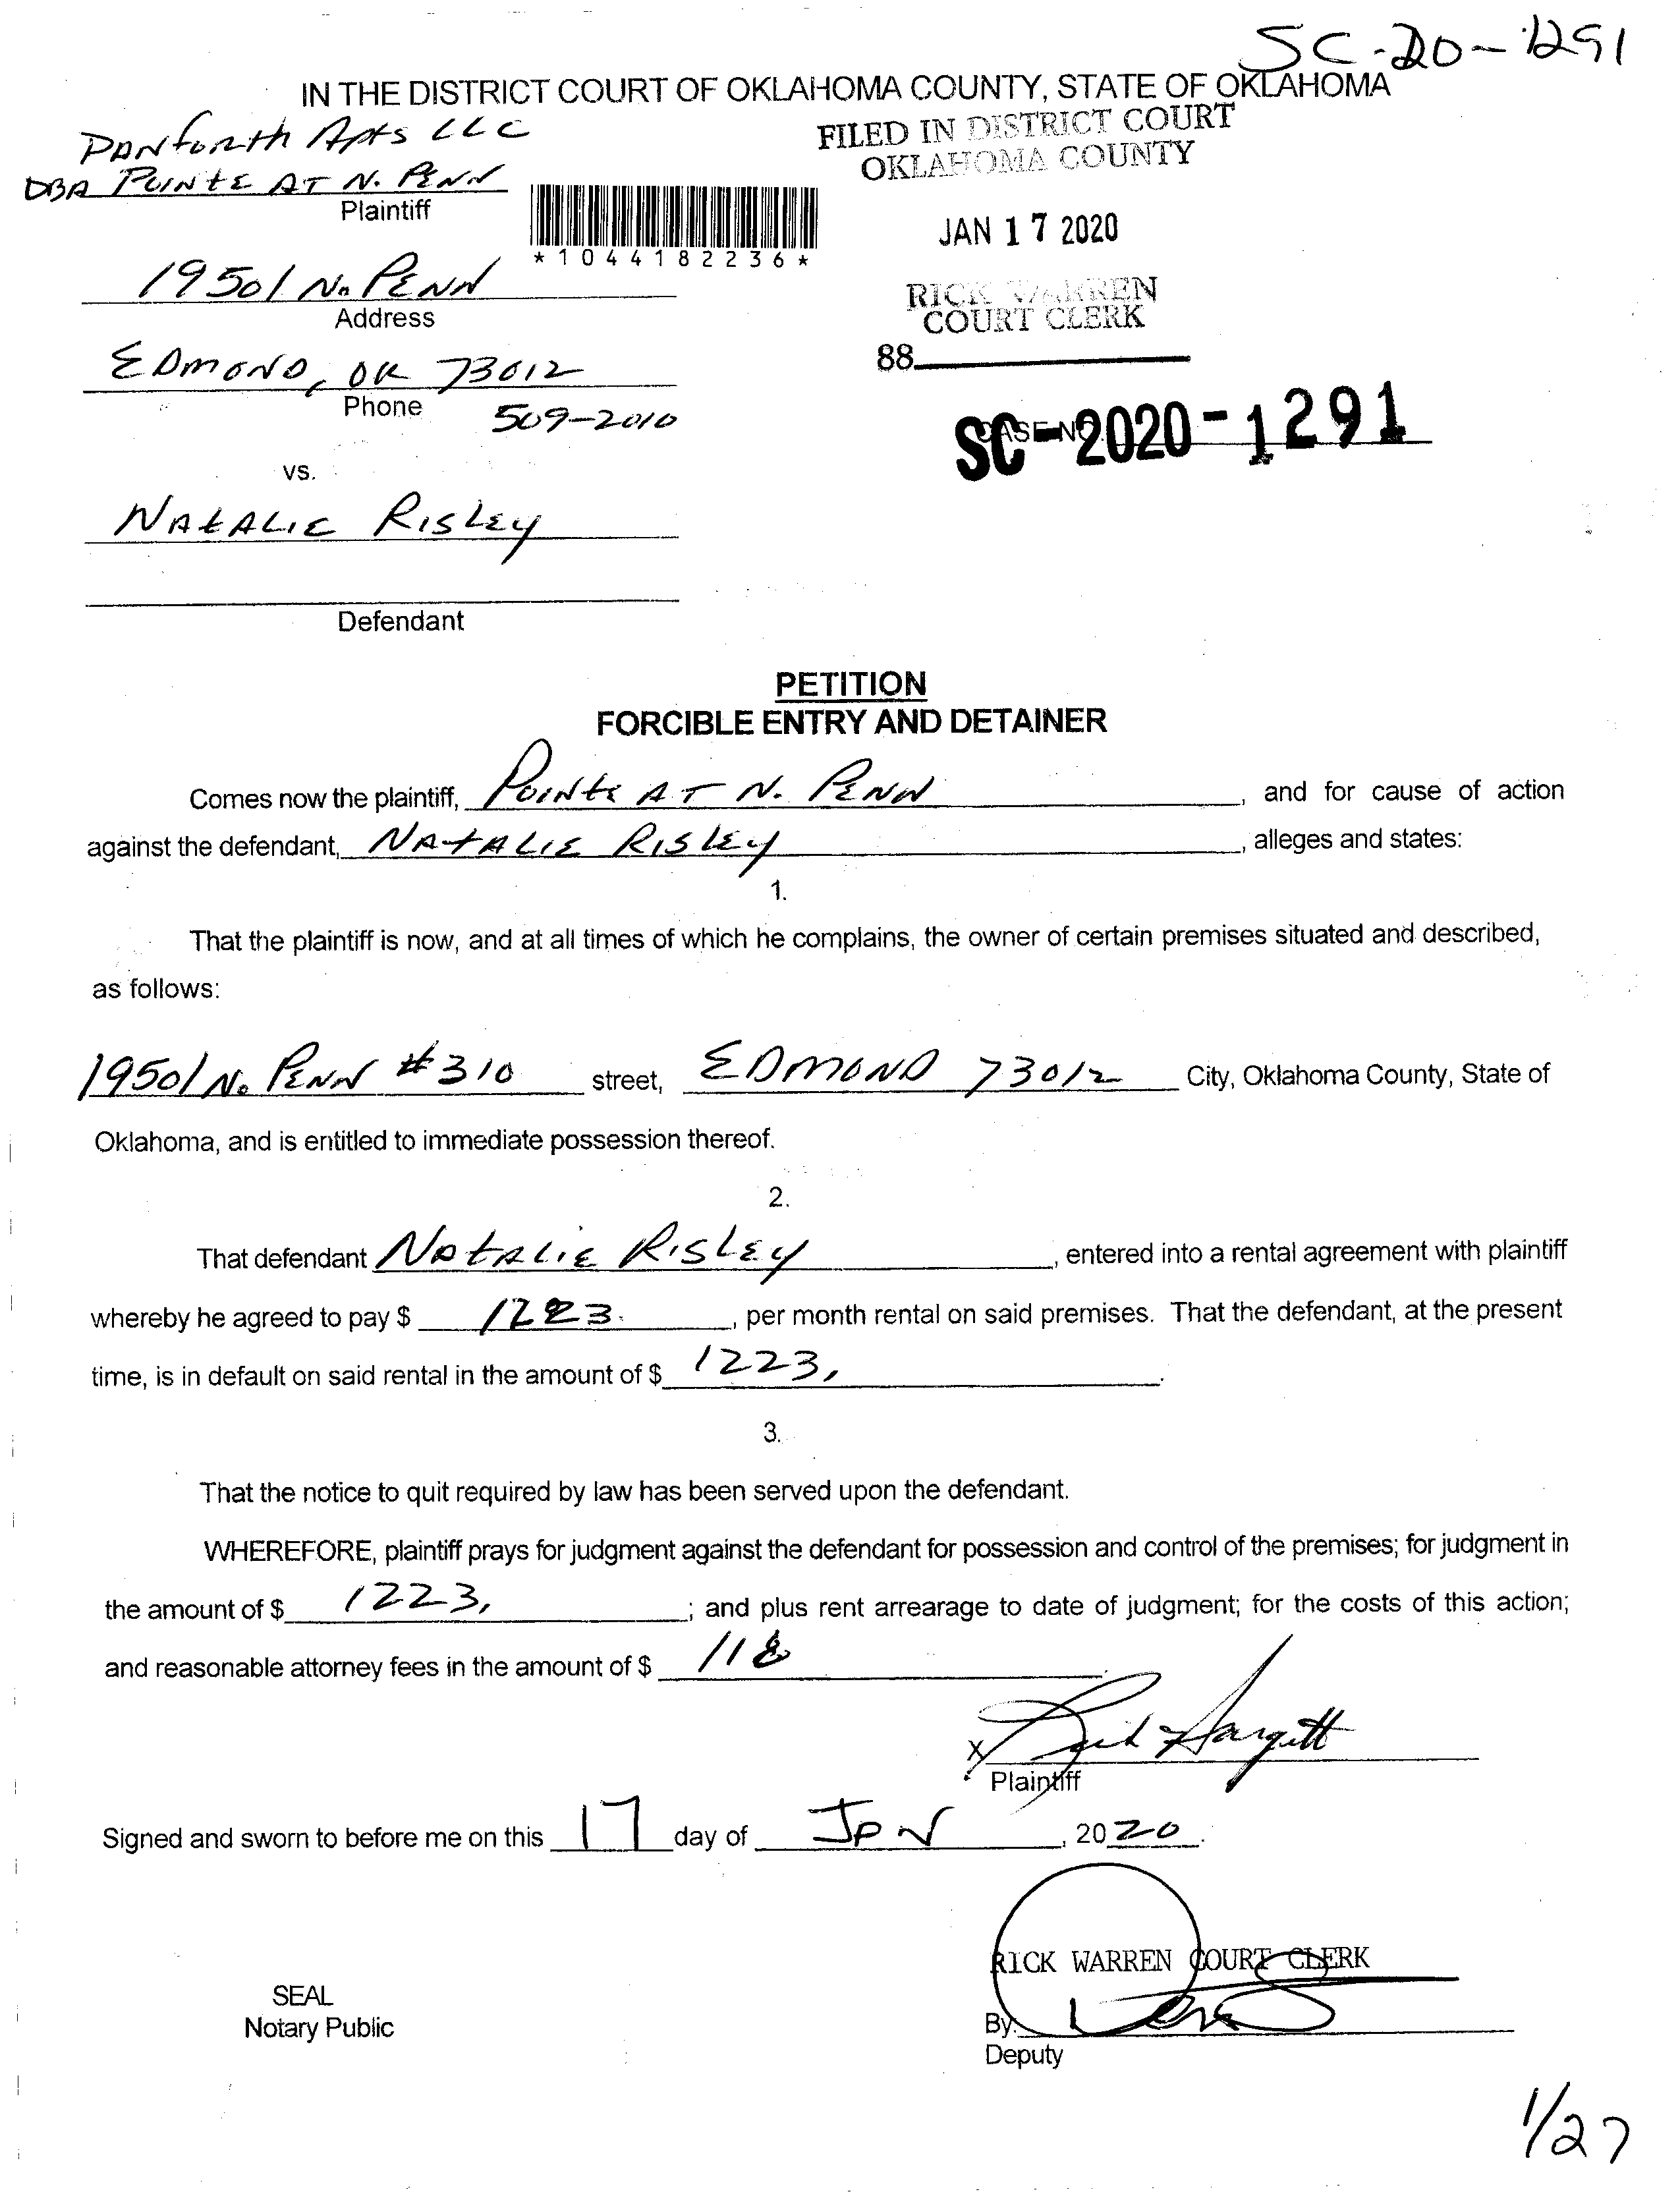 SC-20-1291
IN THE DISTRICT COURT OF OKLAHOMA COUNTY, STATE OF OKLAHOMA
DANforth Apts LLC
DBA POINTE AT N. PENN
Plaintiff
FILED IN DISTRICT COURT
OKLAHOMA COUNTY
*1044182236*
JAN 17 2020
19501 N. PENN
Address
RICK WARREN
COURT CLERK
EDMOND, OK 73012
88
Phone 509-2010
CASE NO.
SC-2020-1291
vs.
NATALIE RISLEY
Defendant
PETITION
FORCIBLE ENTRY AND DETAINER
Comes now the plaintiff, POINTE AT N. PENN, and for cause of action
against the defendant, NATALIE RISLEY, alleges and states:
1.
That the plaintiff is now, and at all times of which he complains, the owner of certain premises situated and described,
as follows:
19501 N. PENN #310 street, EDMOND 73012 City, Oklahoma County, State of
Oklahoma, and is entitled to immediate possession thereof.
2.
That defendant NATALIE RISLEY, entered into a rental agreement with plaintiff
whereby he agreed to pay $ 1223., per month rental on said premises. That the defendant, at the present
time, is in default on said rental in the amount of $ 1223,.
3.
That the notice to quit required by law has been served upon the defendant.
WHEREFORE, plaintiff prays for judgment against the defendant for possession and control of the premises; for judgment in
the amount of $ 1223,; and plus rent arrearage to date of judgment; for the costs of this action;
and reasonable attorney fees in the amount of $ 118.
X Hargett
Plaintiff
Signed and sworn to before me on this 17 day of JAN, 2020.
RICK WARREN COURT CLERK
SEAL
Notary Public
By:
Deputy
1/27